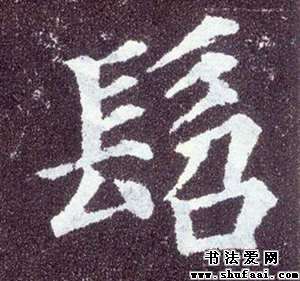 髫
书法爱网
www.shufaai.com